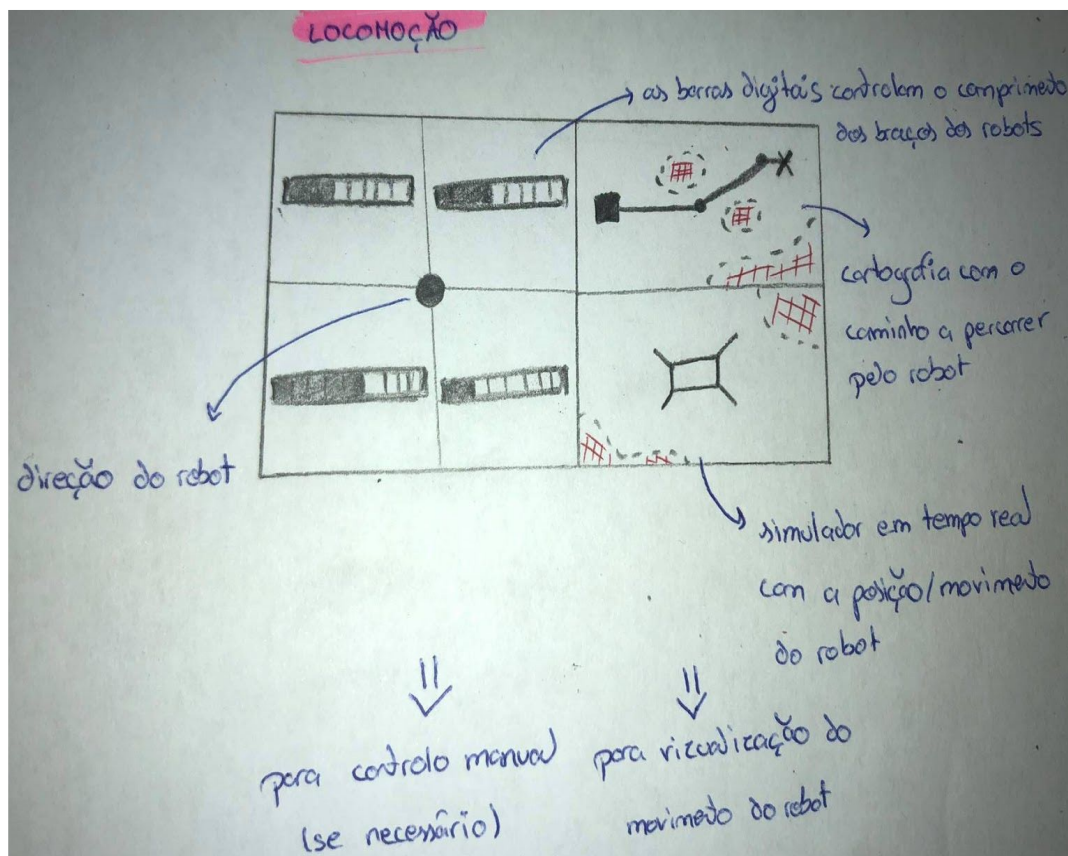 LOCOMOÇÃO
as barras digitais controlam o comprimento
dos braços dos robots
cartografia com o
caminho a percorrer
pelo robot
direção do robot
simulador em tempo real
com a posição/movimento
do robot
para controlo manual
(se necessário)
para vizualização do
movimento do robot